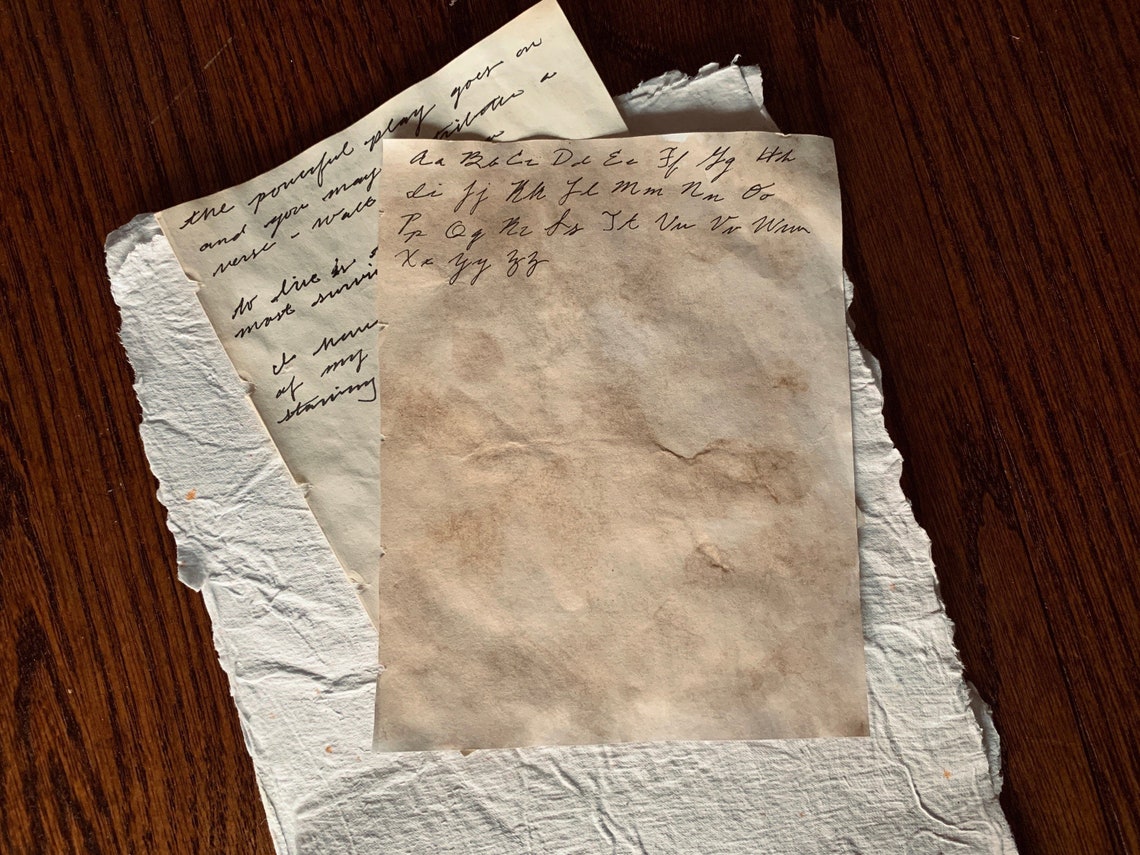 the powerful play goes on
and you may
verse - Walt
to live is
most
I have
of my
staring
Aa Bb Cc Dd Ee Ff Gg Hh
Ii Jj Kk Ll Mm Nn Oo
Pp Qq Rr Ss Tt Uu Vv Ww
Xx Yy Zz